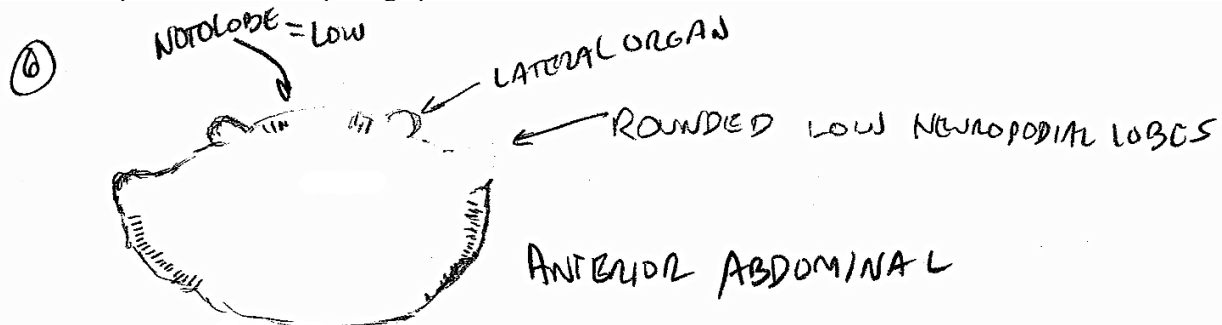 ⑥
NOTOLOBE = LOW
LATERAL ORGAN
ROUNDED LOW NEUROPODIAL LOBES
ANTERIOR ABDOMINAL